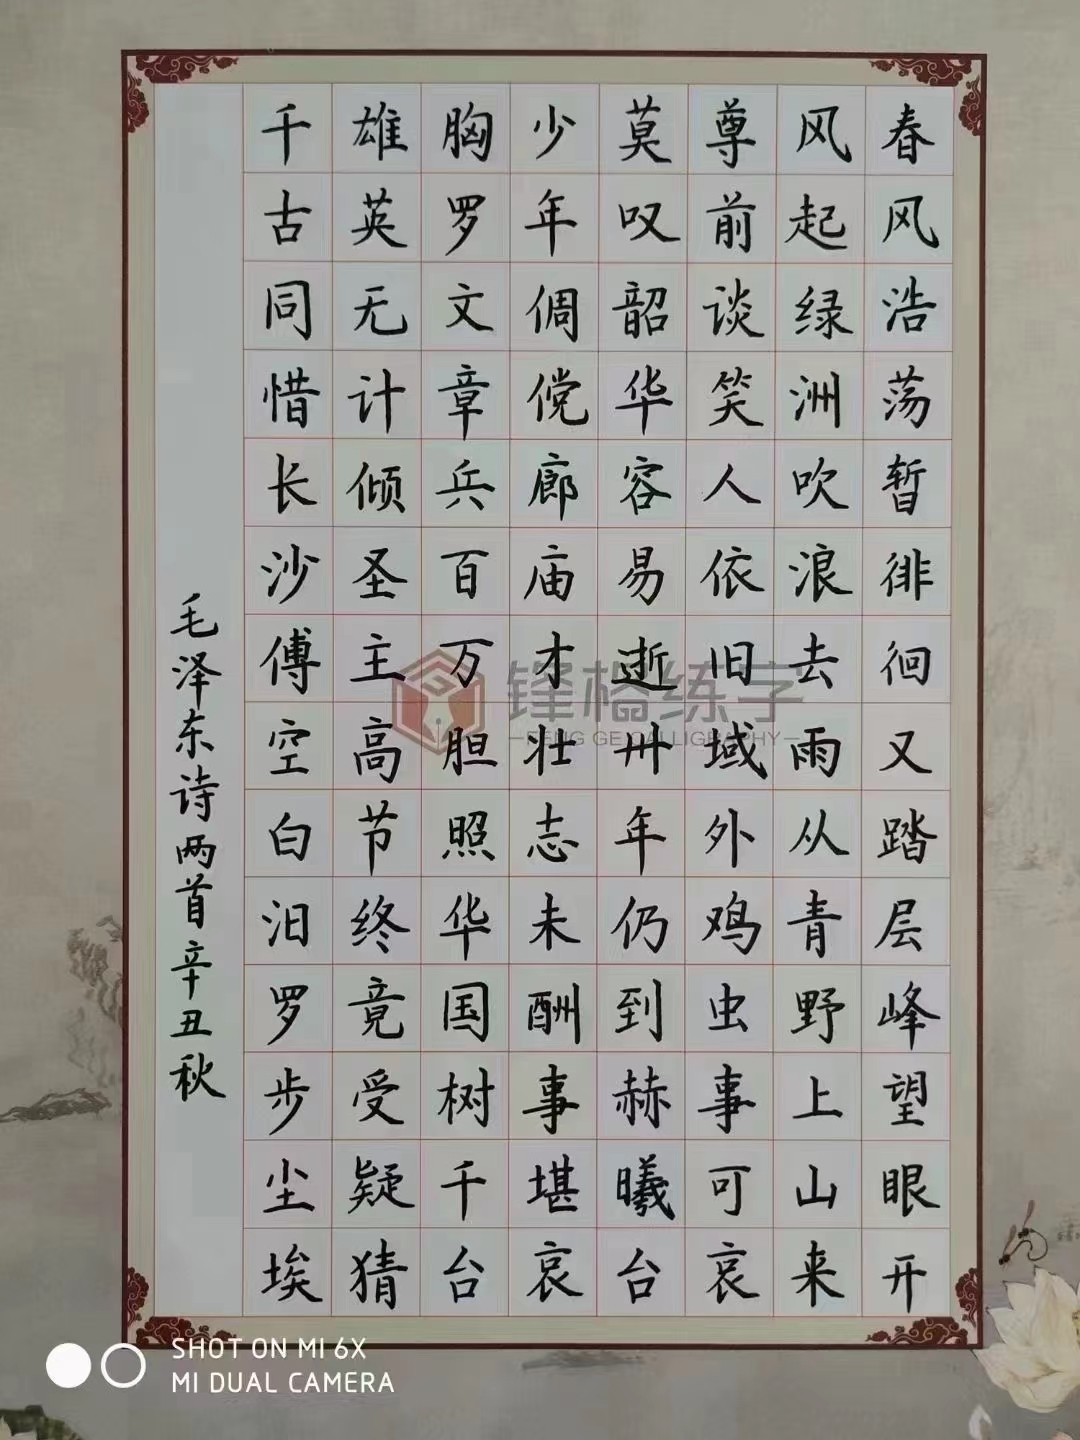 春风浩荡暂徘徊又踏层峰望眼开
风起绿洲吹浪去雨从青野上山来
尊前谈笑人依旧域外鸡虫事可哀
莫叹韶华容易逝卅年仍到赫曦台
少年倜傥廊庙才壮志未酬事堪哀
胸罗文章兵百万胆照华国树千台
雄英无计倾圣主高节终竟受疑猜
千古同惜长沙傅空白汨罗步尘埃
毛泽东诗两首辛丑秋
锋格练字
FENG GE CALLIGRAPHY
SHOT ON MI 6X
MI DUAL CAMERA